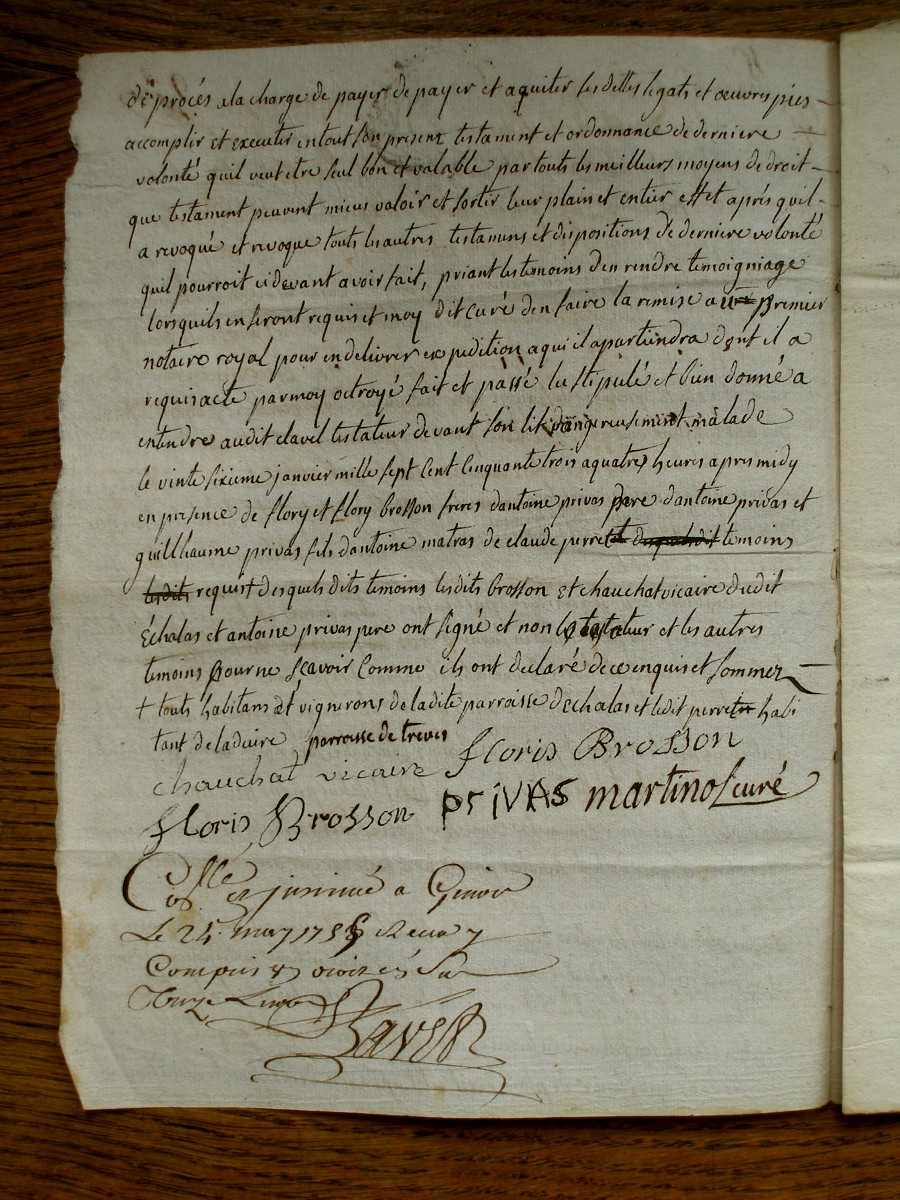 de procés ala charge de payer de payer et aquiter ses dettes legats et oeuvres pies
accomplir et executer entout son present testament et ordonnance de derniere
volonté quil veut etre seul bon et valable par touts les meilleurs moyens de droit
que testament peuvent mieus valoir et sortir leur plain et entier effet aprés quil
a revoqué et revoque touts les autres testamens et dispositions de derniere volonté
quil pourroit cidevant avoir fait, priant les temoins den rendre temoigniage
lorsquils en seront requis et moy dit curé den faire la remise a un premier
notaire royal pour en delivrer expedition a qui il apartiendra dont il a
requis acte par moy octroyé fait et passé lu stipulé et bien donné a
entendre audit clavel testateur devant son lit dangereusement malade
le vinte sixieme janvier mille sept cent cinquante trois a quatres heures apres midy
en presence de flory et flory brosson freres dantoine privas pere dantoine privas et
guillhaume privas fils dantoine matras de claude perret temoins
lesdits requis et desquels dits temoins lesdits brosson et chauchat vicaire dudit
Échalas et antoine privas pere ont signé et non le testateur et les autres
temoins pour ne scavoir comme ils ont declaré de ce enquis et sommez
+ touts habitans et vignerons de ladite parroisse dechalas et ledit perret habi
tant de parroisse de treves
chauchat vicaire floris Brosson
floris Brosson PriVAS martinol curé
Collé insinué a Givor
Le 24 may 1755 Recu
Compris